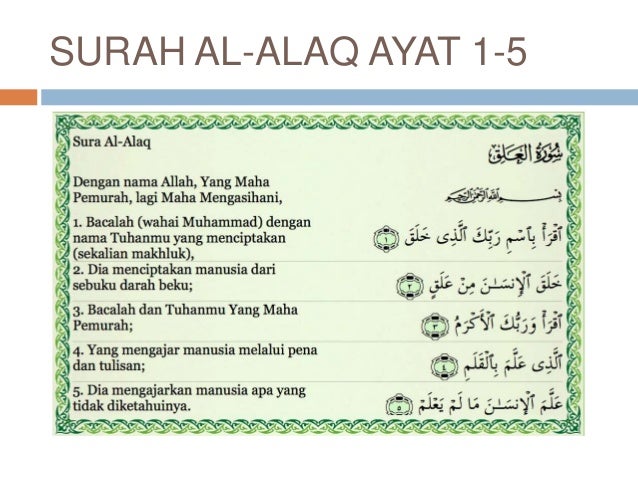 SURAH AL-ALAQ AYAT 1-5
Sura Al-Alaq
سُورَةُ العَلَق
Dengan nama Allah, Yang Maha
Pemurah, lagi Maha Mengasihani,
بِسْمِ ٱللَّهِ ٱلرَّحْمَٰنِ ٱلرَّحِيمِ
1. Bacalah (wahai Muhammad) dengan
nama Tuhanmu yang menciptakan
(sekalian makhluk),
ٱقْرَأْ بِٱسْمِ رَبِّكَ ٱلَّذِى خَلَقَ ١
2. Dia menciptakan manusia dari
sebuku darah beku;
خَلَقَ ٱلْإِنسَـٰنَ مِنْ عَلَقٍ ٢
3. Bacalah dan Tuhanmu Yang Maha
Pemurah;
ٱقْرَأْ وَرَبُّكَ ٱلْأَكْرَمُ ٣
4. Yang mengajar manusia melalui pena
dan tulisan;
ٱلَّذِى عَلَّمَ بِٱلْقَلَمِ ٤
5. Dia mengajarkan manusia apa yang
tidak diketahuinya.
عَلَّمَ ٱلْإِنسَـٰنَ مَا لَمْ يَعْلَمْ ٥